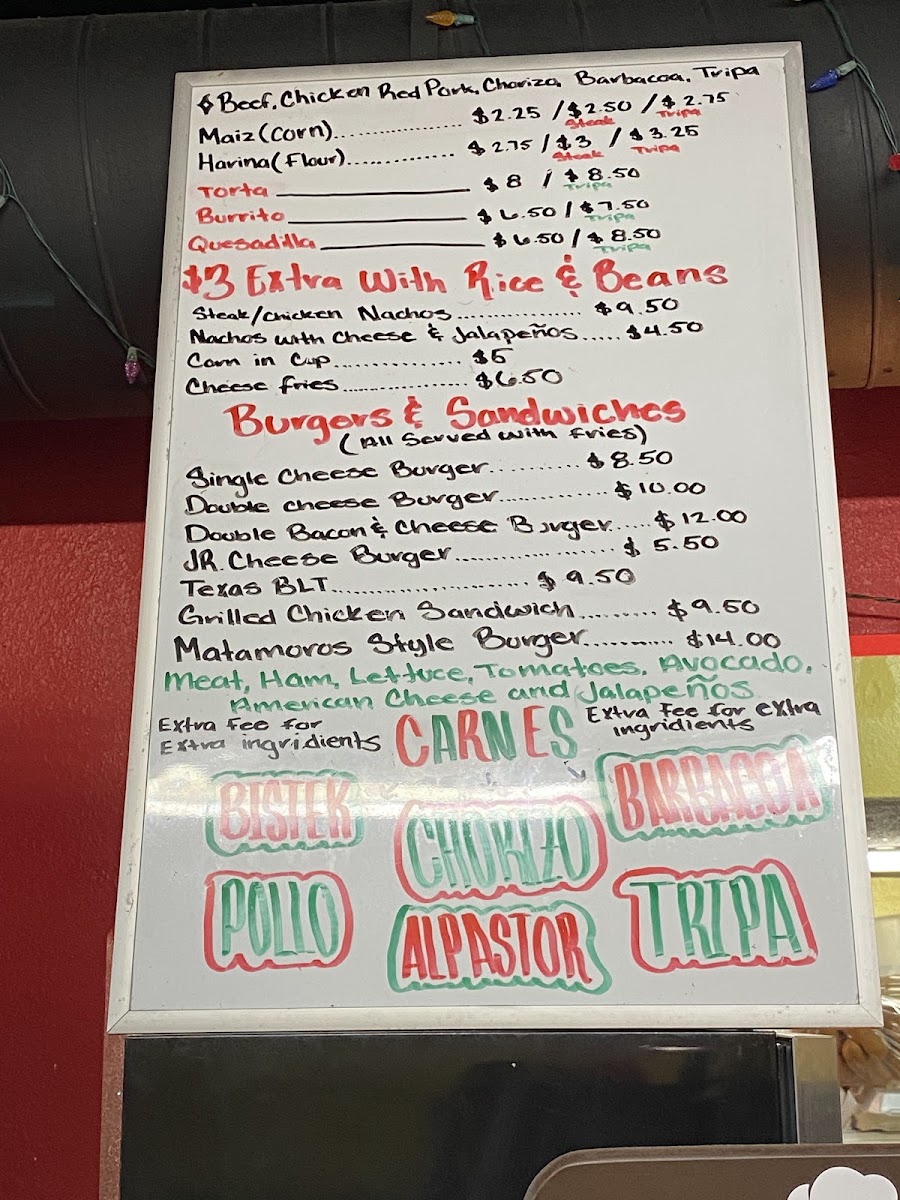 Beef, Chicken Red Pork, Chorizo, Barbacoa, Tripa
Maiz (Corn)............... $2.25 / $2.50 / $2.75
Steak Tripa
Harina (Flour).............. $2.75 / $3 / $3.25
Steak Tripa
Torta $8 / $8.50
Tripa
Burrito $6.50 / $7.50
Tripa
Quesadilla $6.50 / $8.50
Tripa
$3 Extra With Rice & Beans
Steak/Chicken Nachos................. $9.50
Nachos with Cheese & Jalapeños...... $4.50
Corn in Cup................ $5
Cheese fries................ $6.50
Burgers & Sandwiches
(All Served with fries)
Single Cheese Burger.......... $8.50
Double cheese Burger............ $10.00
Double Bacon & Cheese Burger..... $12.00
JR. Cheese Burger.................... $5.50
Texas BLT......................... $9.50
Grilled Chicken Sandwich......... $9.50
Matamoros Style Burger........... $14.00
Meat, Ham, Lettuce, Tomatoes, Avocado,
American Cheese and Jalapeños
Extra Fee for
Extra ingridients
CARNES
Extra Fee for extra
ingridients
BISTEK
CHORIZO
BARBACOA
POLLO
ALPASTOR
TRIPA